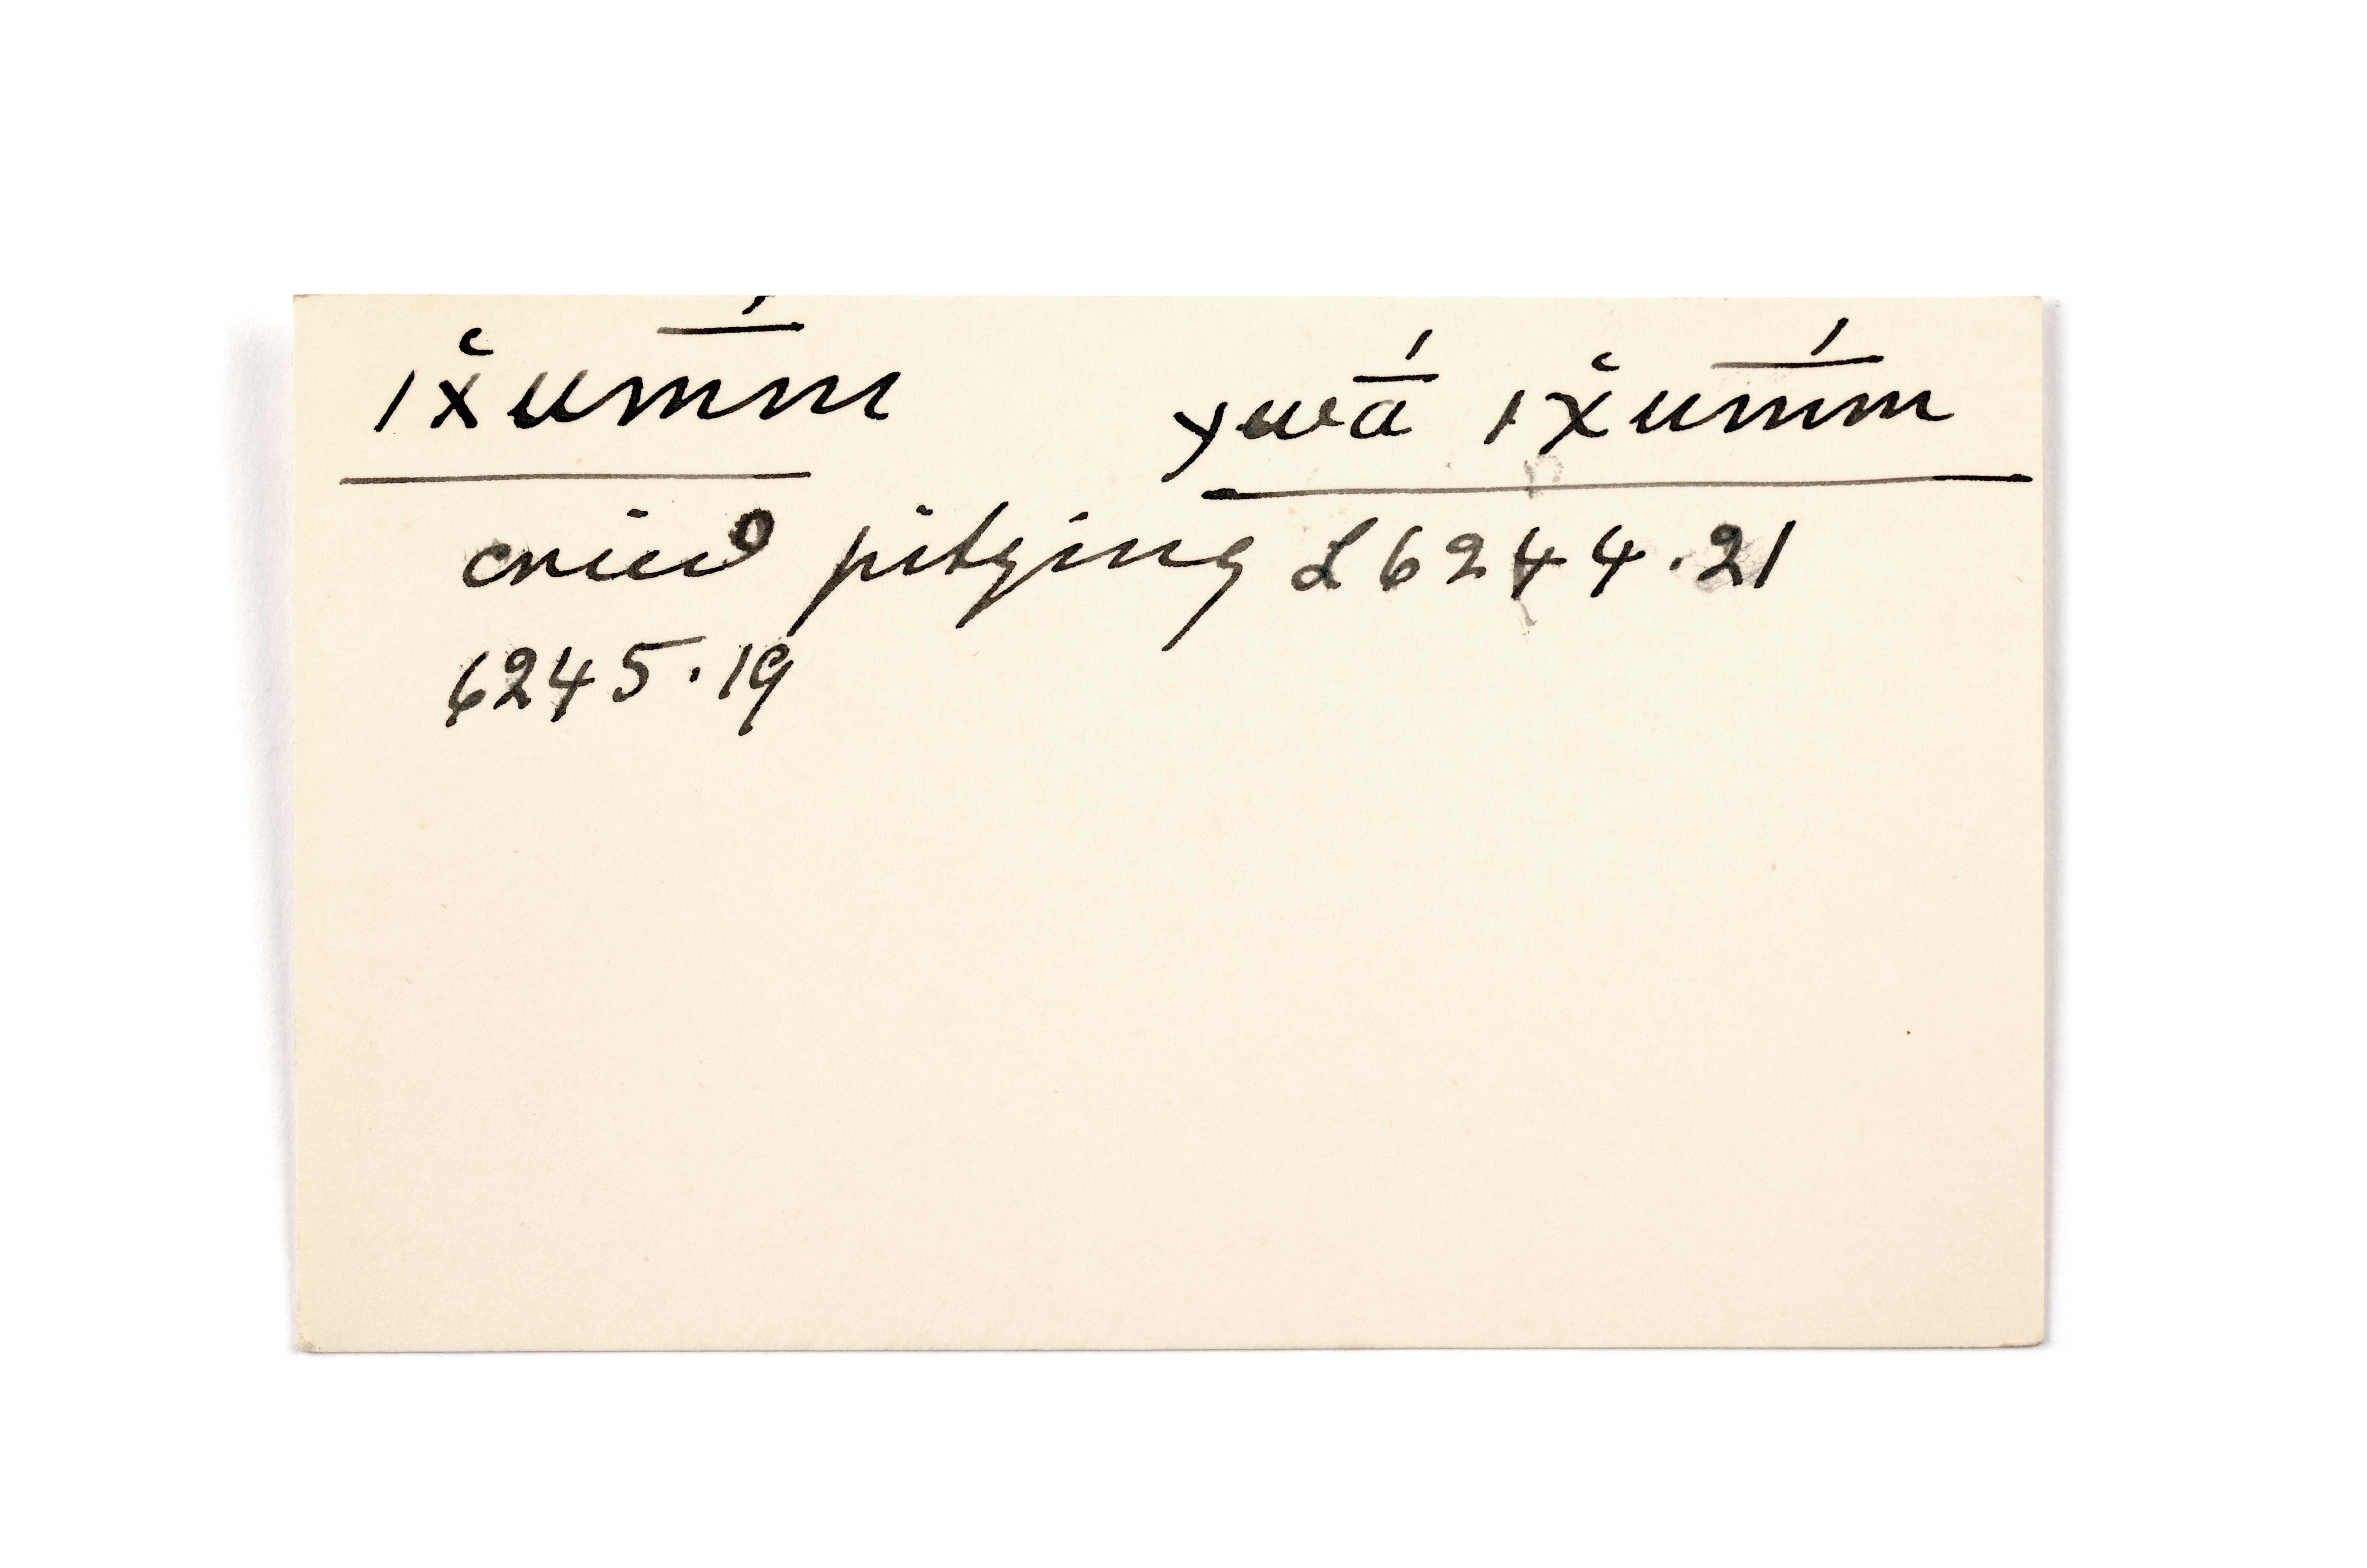 ıx̌umm̄́ yuwā́ ıx̌umm̄́
cried pitying L6244.21
6245.19